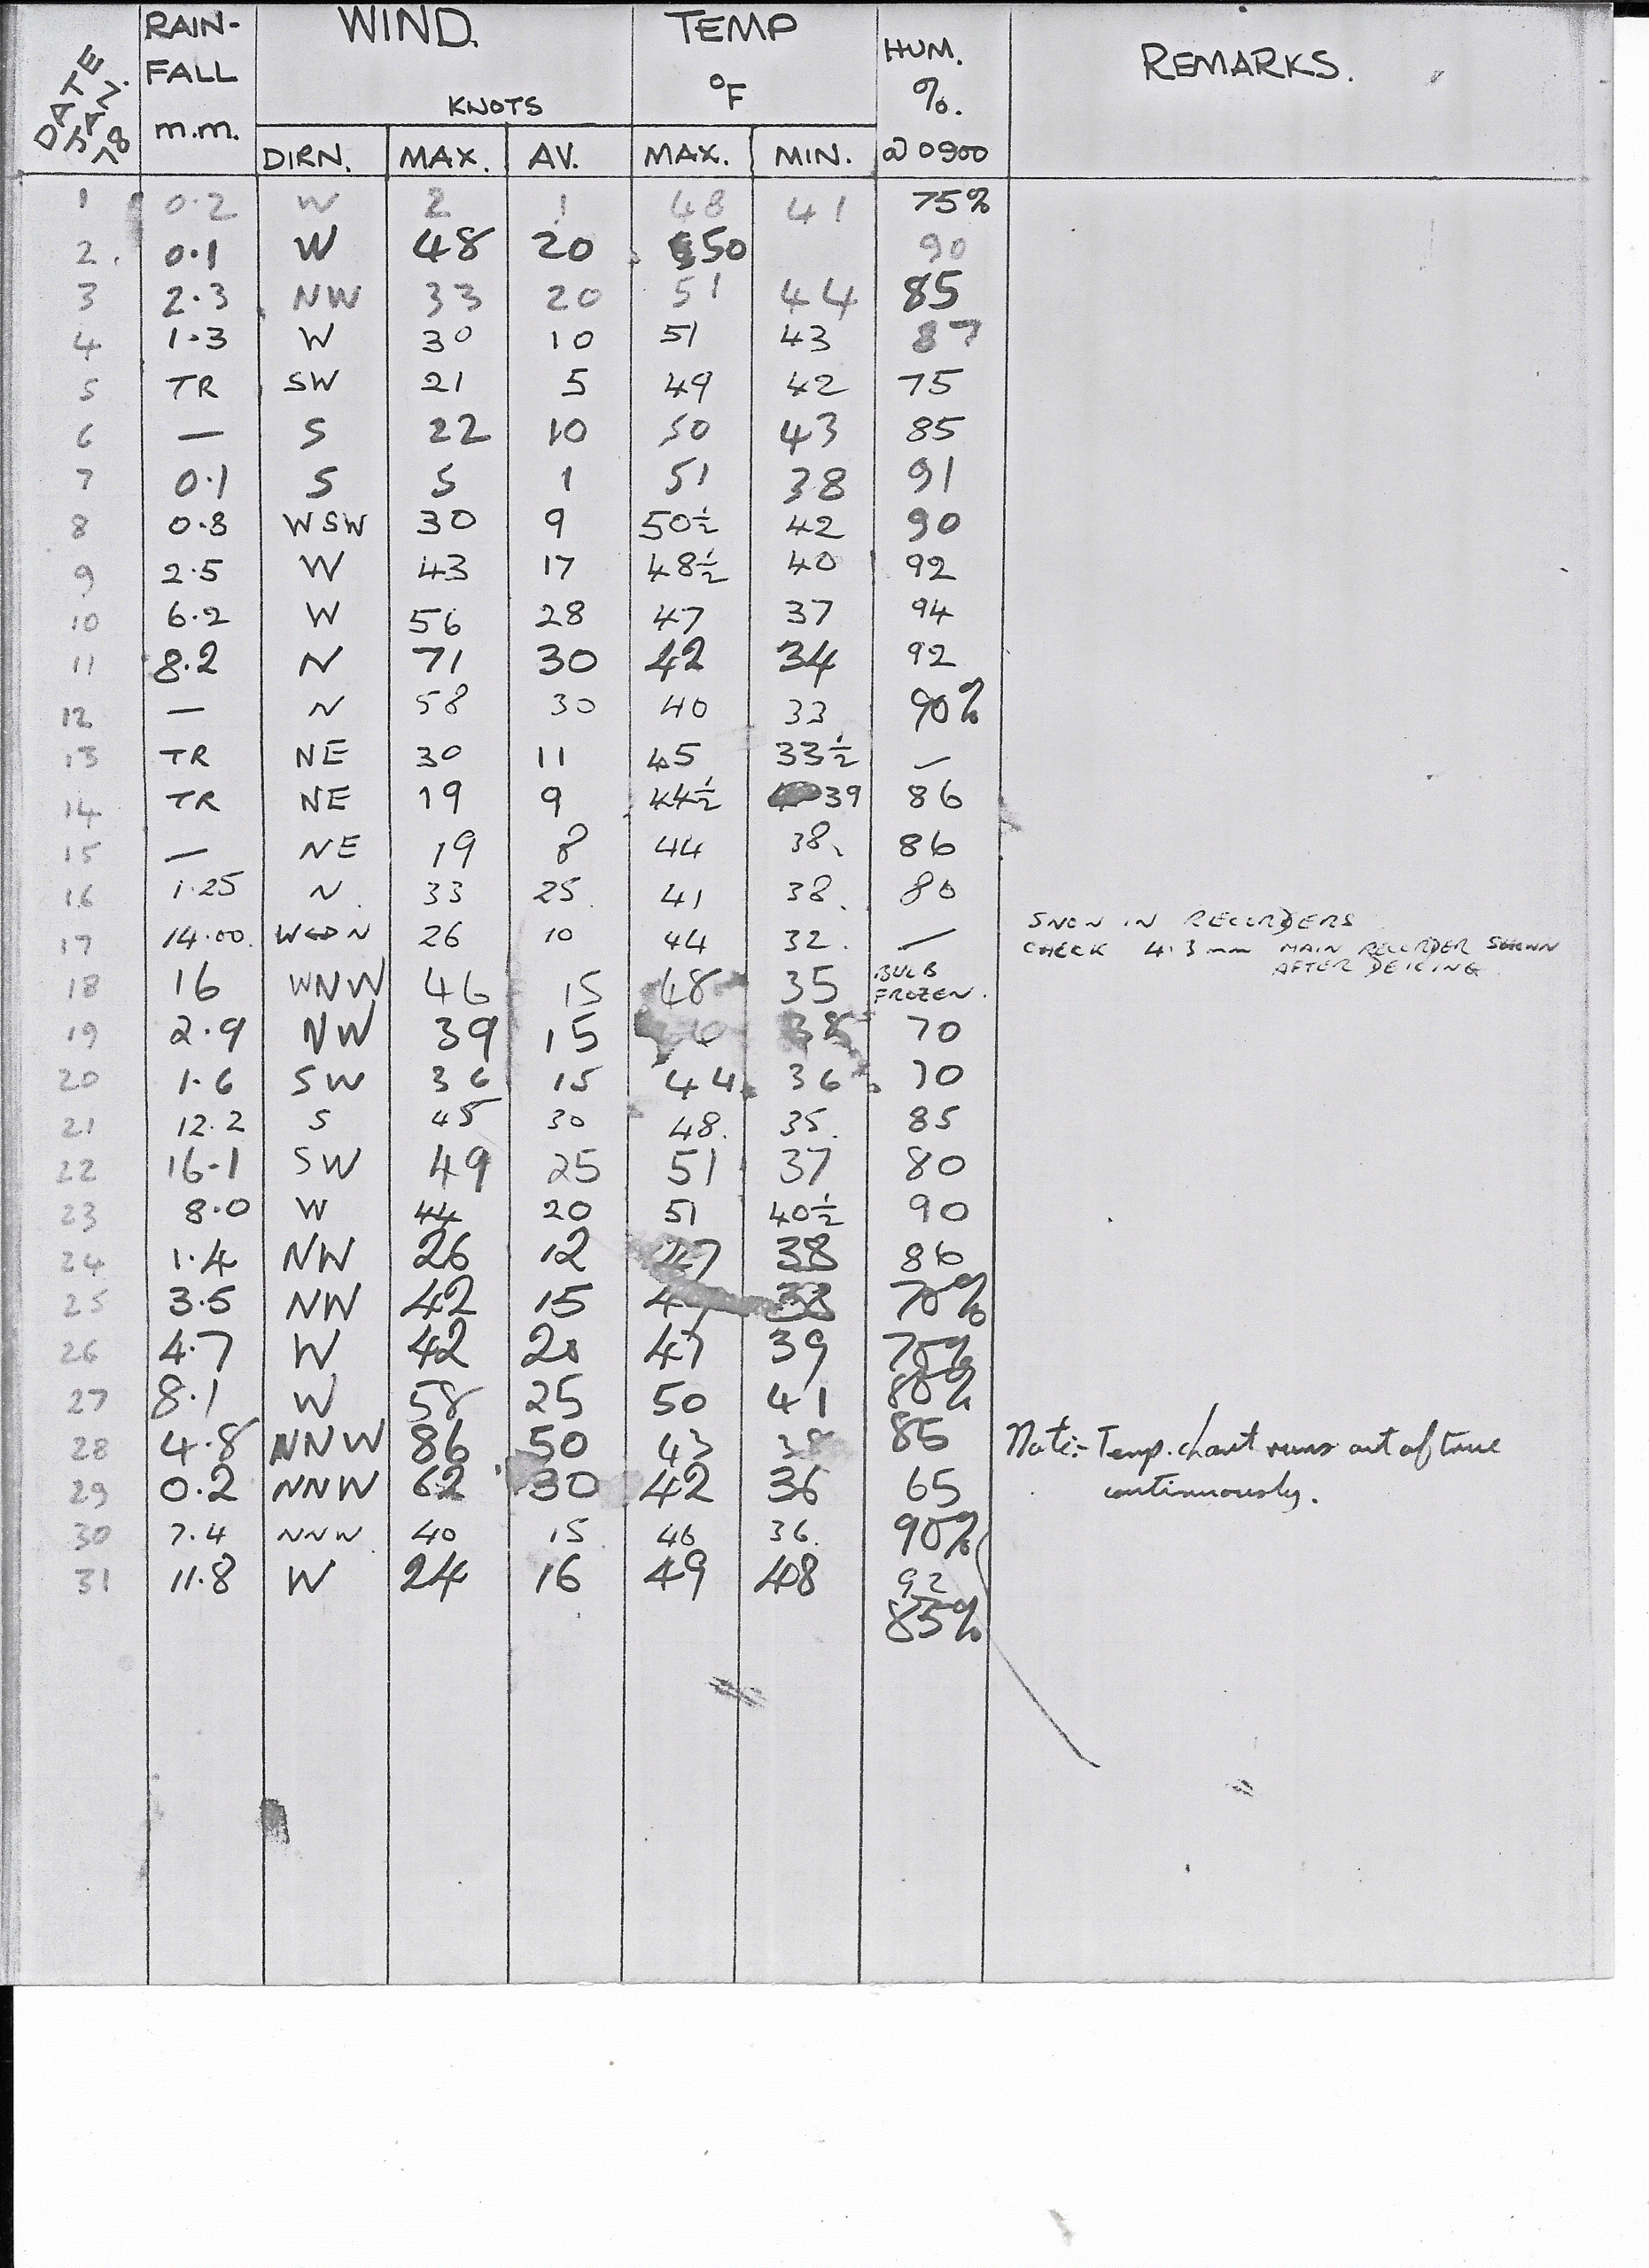 DATE JAN. 78 RAIN-FALL m.m. WIND. KNOTS TEMP °F HUM. %. @ 0900 REMARKS.
DIRN. MAX. AV. MAX. MIN.
1 0.2 W 2 1 48 41 75%
2. 0.1 W 48 20 50 90
3 2.3 NW 33 20 51 44 85
4 1.3 W 30 10 51 43 87
5 TR SW 21 5 49 42 75
6 — S 22 10 50 43 85
7 0.1 S 5 1 51 38 91
8 0.8 WSW 30 9 50½ 42 90
9 2.5 W 43 17 48½ 40 92
10 6.2 W 56 28 47 37 94
11 8.2 N 71 30 42 34 92
12 — N 58 30 40 33 90%
13 TR NE 30 11 45 33½ —
14 TR NE 19 9 44½ 39 86
15 — NE 19 8 44 38. 86
16 1.25 N. 33 25. 41 38. 80
17 14.00. W↔N 26 10 44 32. — SNOW IN RECORDERS
CHECK 4.3mm MAIN RECORDER SHOWN
AFTER DEICING.
18 16 WNW 46 15 48 35 BULB FROZEN.
19 2.9 NW 39 15 70
20 1.6 SW 36 15 44 36 70
21 12.2 S 45 30 48. 35. 85
22 16.1 SW 49 25 51 37 80
23 8.0 W 44 20 51 40½ 90
24 1.4 NW 26 12 47 38 86
25 3.5 NW 42 15 70%
26 4.7 W 42 20 47 39 75%
27 8.1 W 58 25 50 41 80%
28 4.8 NNW 86 50 43 38 85 Note:- Temp. chart runs out of true
29 0.2 NNW 62 30 42 36 65 continuously.
30 7.4 NNW 40 15 46 36. 90%
31 11.8 W 24 16 49 48 92
85%